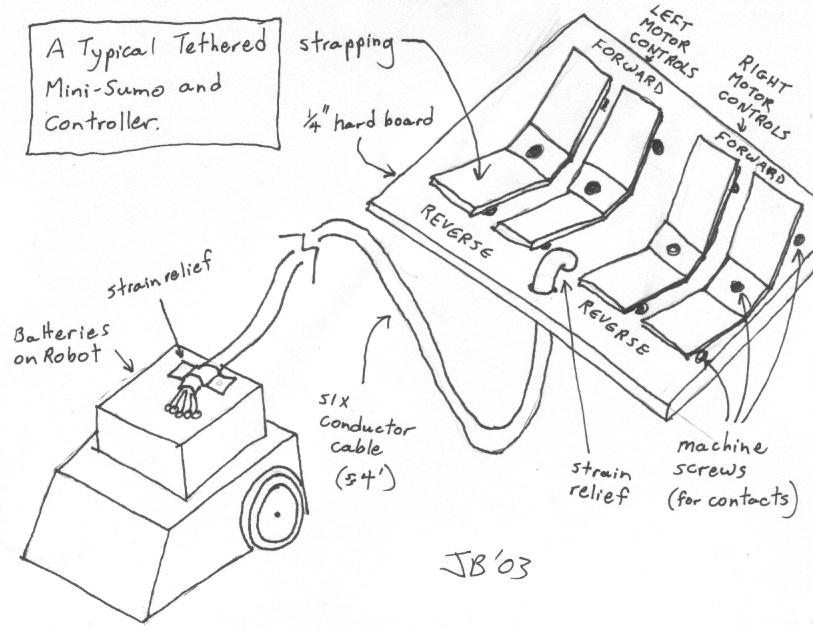 A Typical Tethered
Mini-Sumo and
Controller.
strapping
1/4" hard board
LEFT
MOTOR
CONTROLS
FORWARD
RIGHT
MOTOR
CONTROLS
FORWARD
REVERSE
REVERSE
strain relief
Batteries
on Robot
six
conductor
cable
(≤4')
strain
relief
machine
screws
(for contacts)
JB'03